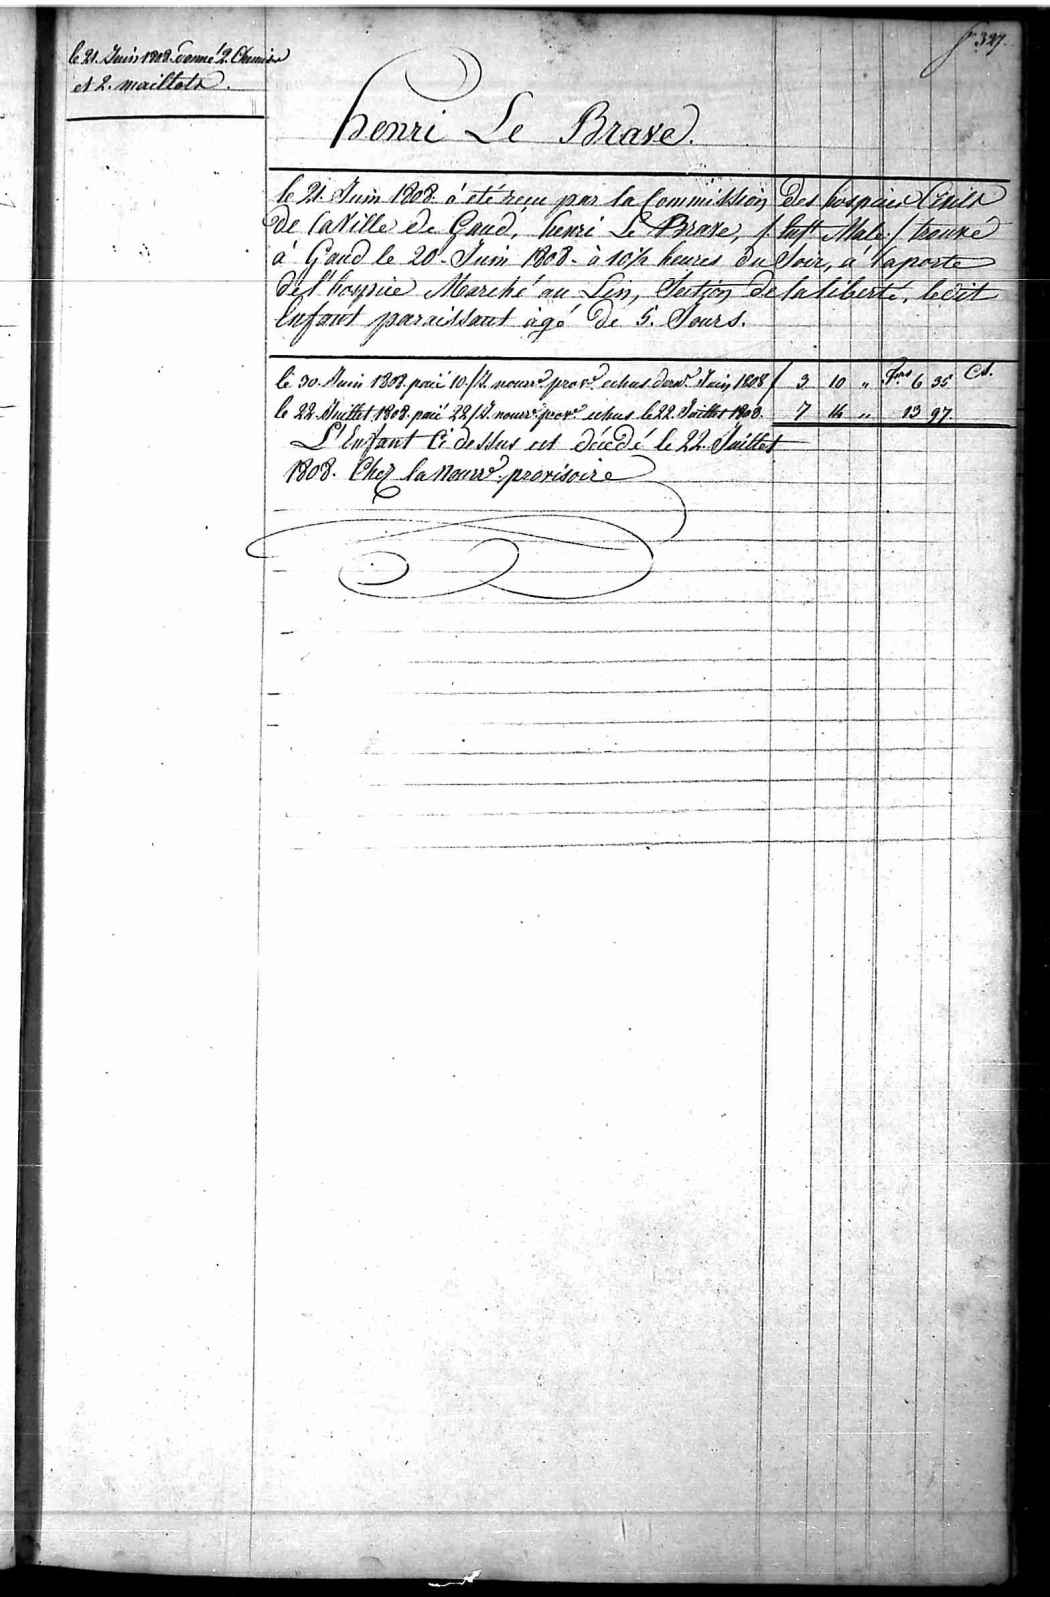 fo 327.
le 21. Juin 1808. donné 2. Chemises
et 2. maillots.
henri Le Brave.
le 21. Juin 1808. à été reçu par la Commission des hospices Civils
de la Ville de Gand, henri Le Brave, /:Enft Male:/ trouvé
à Gand le 20. Juin 1808. à 10½ heures du Soir, à la porte
de l'hospice Marché au Lin, Section de la liberté, ledit
Enfant paraissant agé de 5. Jours.
le 30. Juin 1808. paié 10/J. nourre. prove. echus derne. Juin 1808 3 10 " Frs 6 35 Cs.
le 22. Juillet 1808. paié 22/J. nourre. prove. echus le 22. Juillet 1808. 7 14 " 13 97.
L'Enfant Ci dessus est décédé le 22. Juillet
1808. Chez la nourre. provisoire